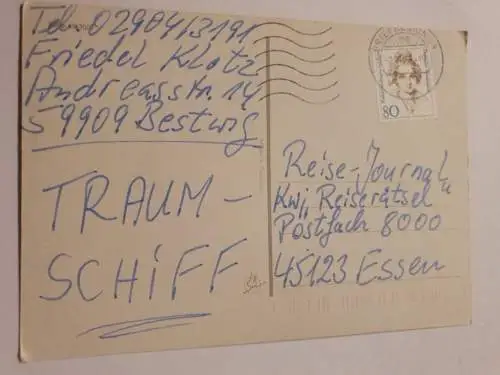 Tel. 02904/3191
Friedel Klotz
Andreasstr. 14
59909 Bestwig
TRAUM-
SCHIFF
80
Reise-Journal
Kwj, Reiserätsel
Postfach 8000
45123 Essen